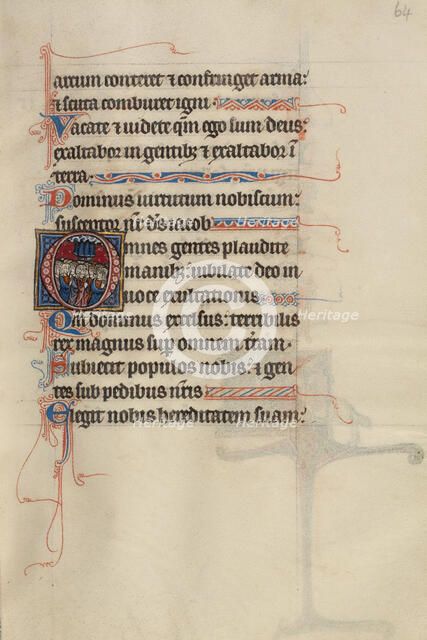 64
arcum conteret ⁊ confringet arma:
⁊ scuta comburet igni.
Vacate ⁊ uidete qm̄ ego sum deus:
exaltabor in gentibꝫ ⁊ exaltabor ī
terra.
Dominus uirtutum nobiscum:
susceptor nr̄ ds̄ iacob
Omnes gentes plaudite
manibꝫ iubilate deo in
uoce exultationis
Qm̄ dominus excelsus: terribilis
rex magnus sup omnem tr̄am.
Subiecit populos nobis: ⁊ gen
tes sub pedibus nr̄is
Elegit nobis hereditatem suam:
Heritage
Heritage
Heritage
Heritage